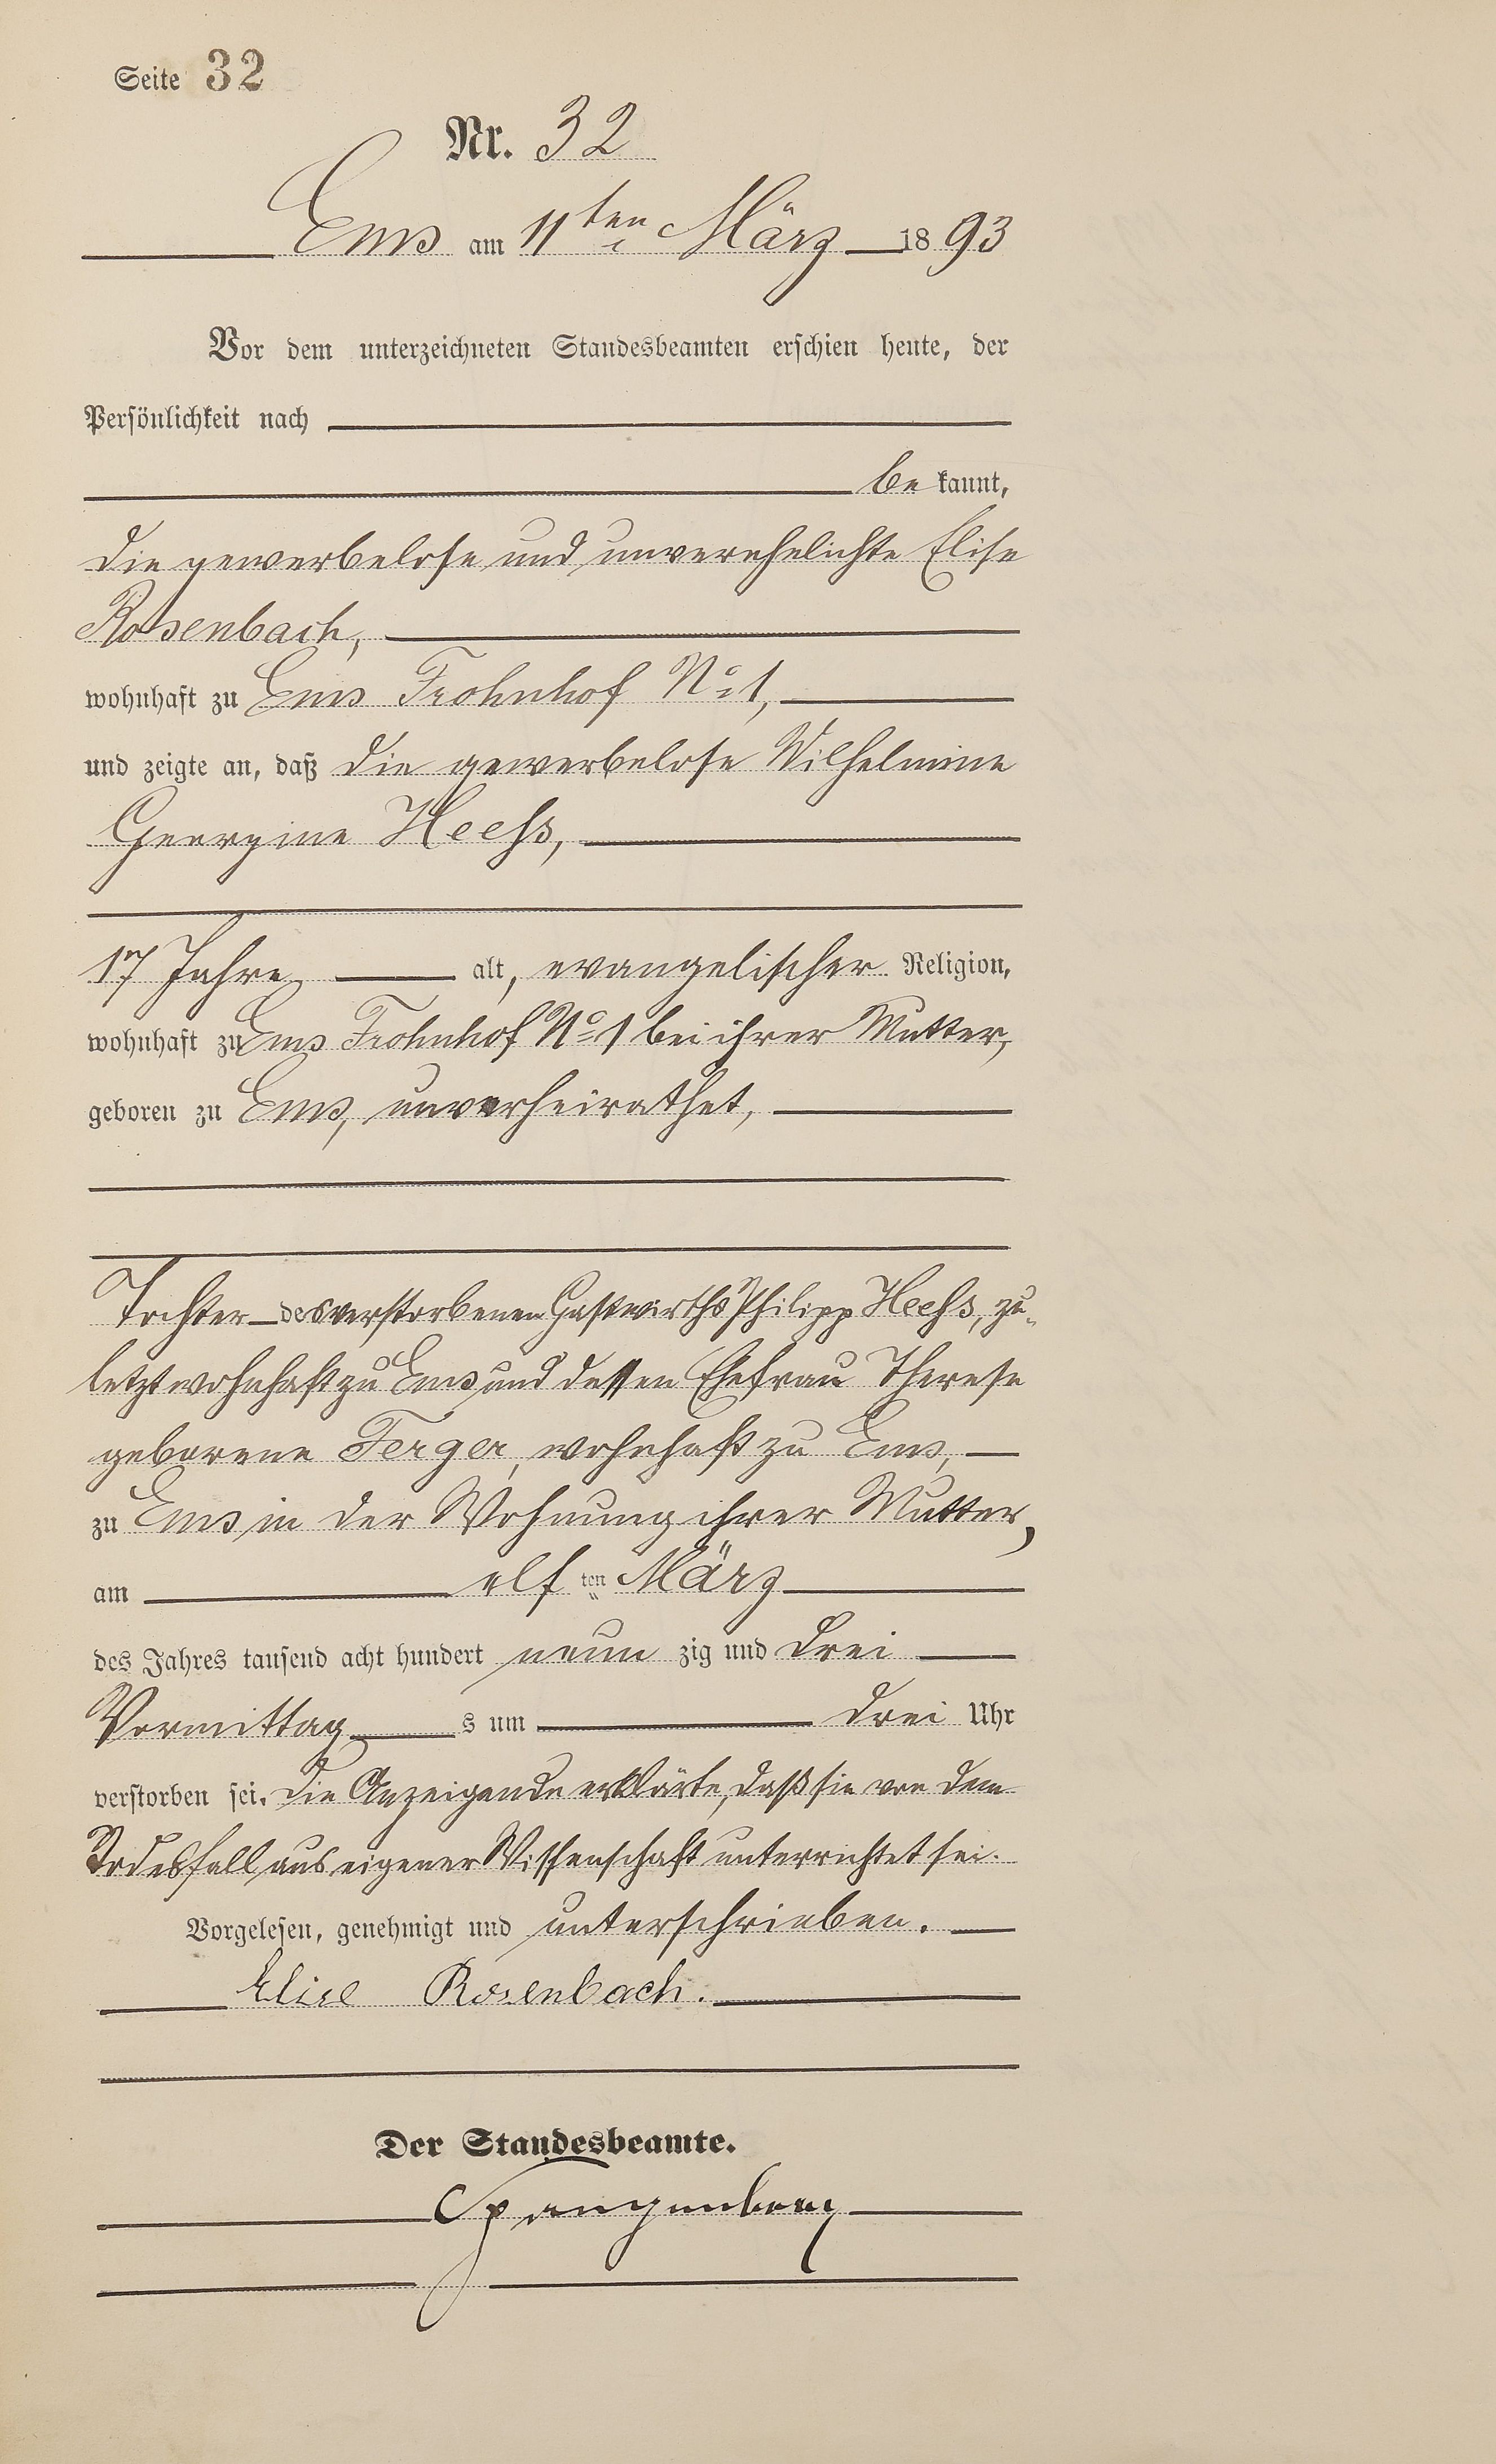 Seite 32
Nr. 32
Ems am 11ten März 1893
Vor dem unterzeichneten Standesbeamten erschien heute, der
Persönlichkeit nach
be kannt,
die gewerbelose und unverehelichte Elise
Rosenbach,
wohnhaft zu Ems Frohnhof No 1,
und zeigte an, daß die gewerbelose Wilhelmine
Georgine Heeß,
17 Jahre alt, evangelischer Religion,
wohnhaft zu Ems Frohnhof No 1 bei ihrer Mutter,
geboren zu Ems, unverheirathet,
Tochter des verstorbenen Gastwirths Philipp Heeß, zu-
letzt wohnhaft zu Ems und dessen Ehefrau Therese
geborene Ferger, wohnhaft zu Ems,
zu Ems in der Wohnung ihrer Mutter,
am elf ten März
des Jahres tausend acht hundert neun zig und drei
Vormittag s um drei Uhr
verstorben sei. Die Anzeigende erklärte, daß sie von dem
Todesfall aus eigener Wissenschaft unterrichtet sei.
Vorgelesen, genehmigt und unterschrieben.
Elise Rosenbach.
Der Standesbeamte.
Spangenberg